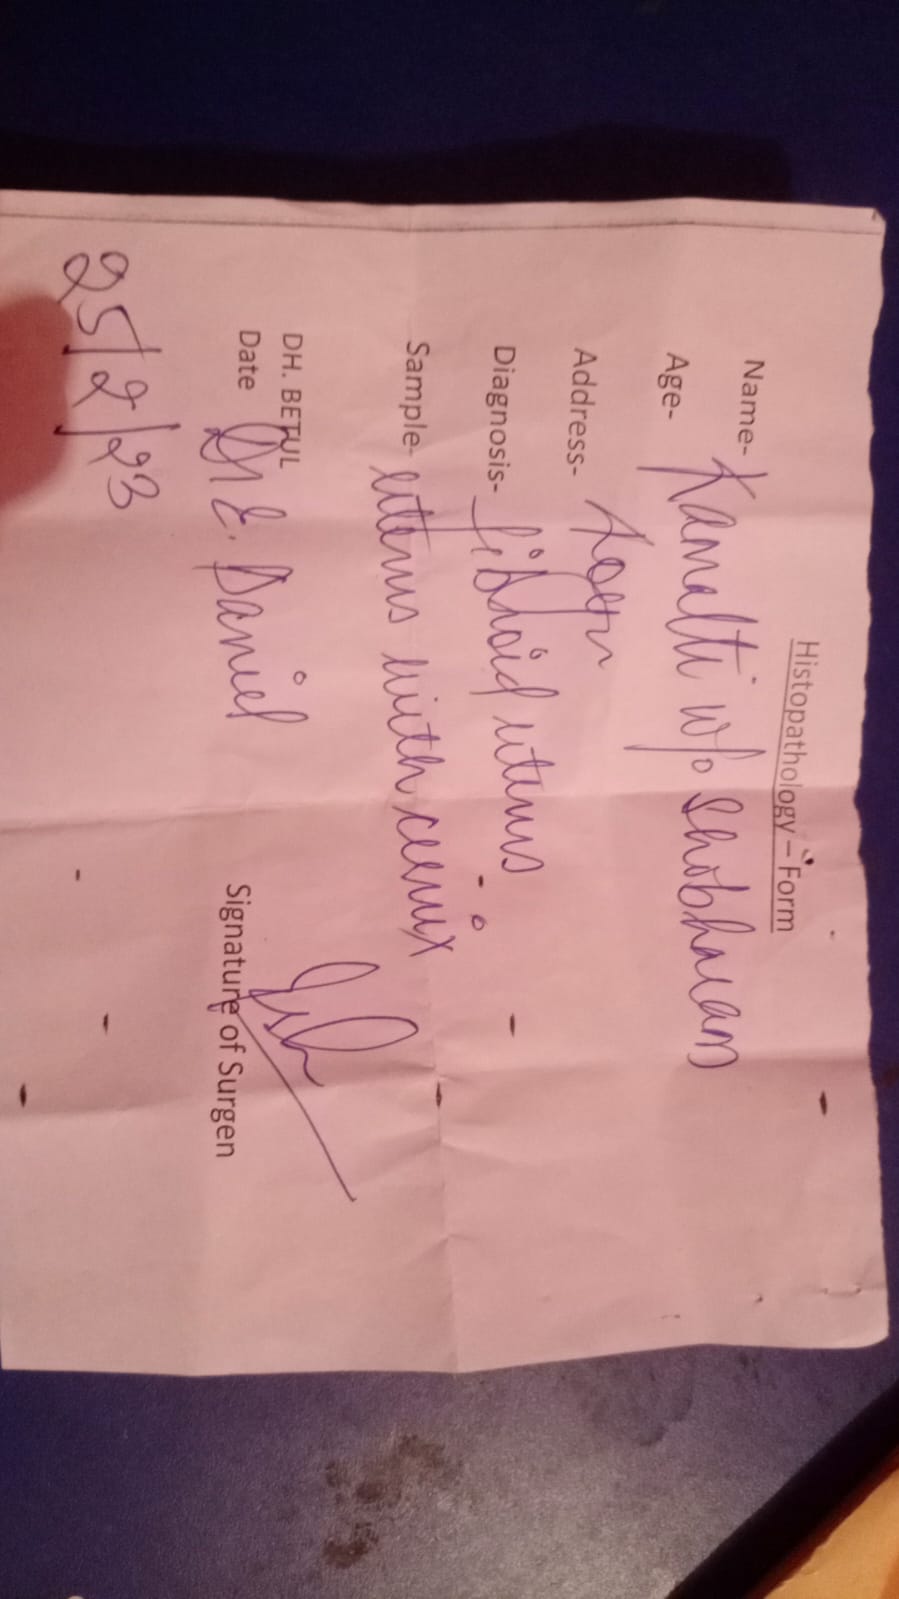 Histopathology – Form
Name- Kamalti w/o Shobharam
Age- 40yr
Address-
Diagnosis- fibroid uterus
Sample- uterus with cervix
DH. BETUL
Date Dr E. Daniel
Signature of Surgen
25/2/23